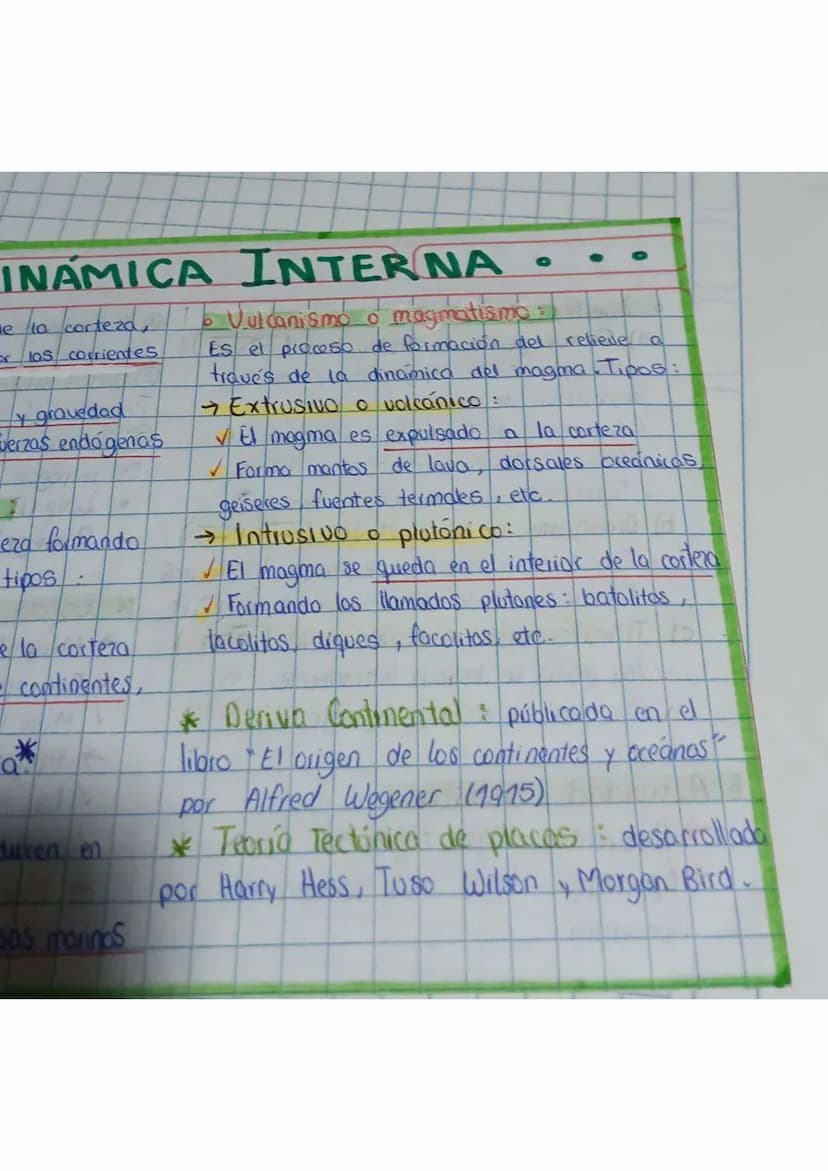 INÁMICA INTERNA . . .
de la corteza,
or las corrientes
y gravedad
uerzas endógenas
:
eza formando
tipos :
e la corteza
continentes,
a*
ducen en
sas marinos
• Vulcanismo o magmatismo :
Es el proceso de formación del relieve a
través de la dinámica del magma. Tipos:
→ Extrusivo o volcánico :
✓ El magma es expulsado a la corteza
✓ Forma mantos de lava, dorsales oceánicas,
geiseres, fuentes termales, etc.
→ Intrusivo o plutónico:
✓ El magma se queda en el interior de la corteza
✓ Formando los llamados plutones: batolitos,
lacolitos, diques, facolitos, etc.
* Deriva Continental : públicada en el
libro "El origen de los continentes y oceános"
por Alfred Wegener (1915)
* Teoría Tectónica de placas : desarrollada
por Harry Hess, Tuso Wilson y Morgan Bird.